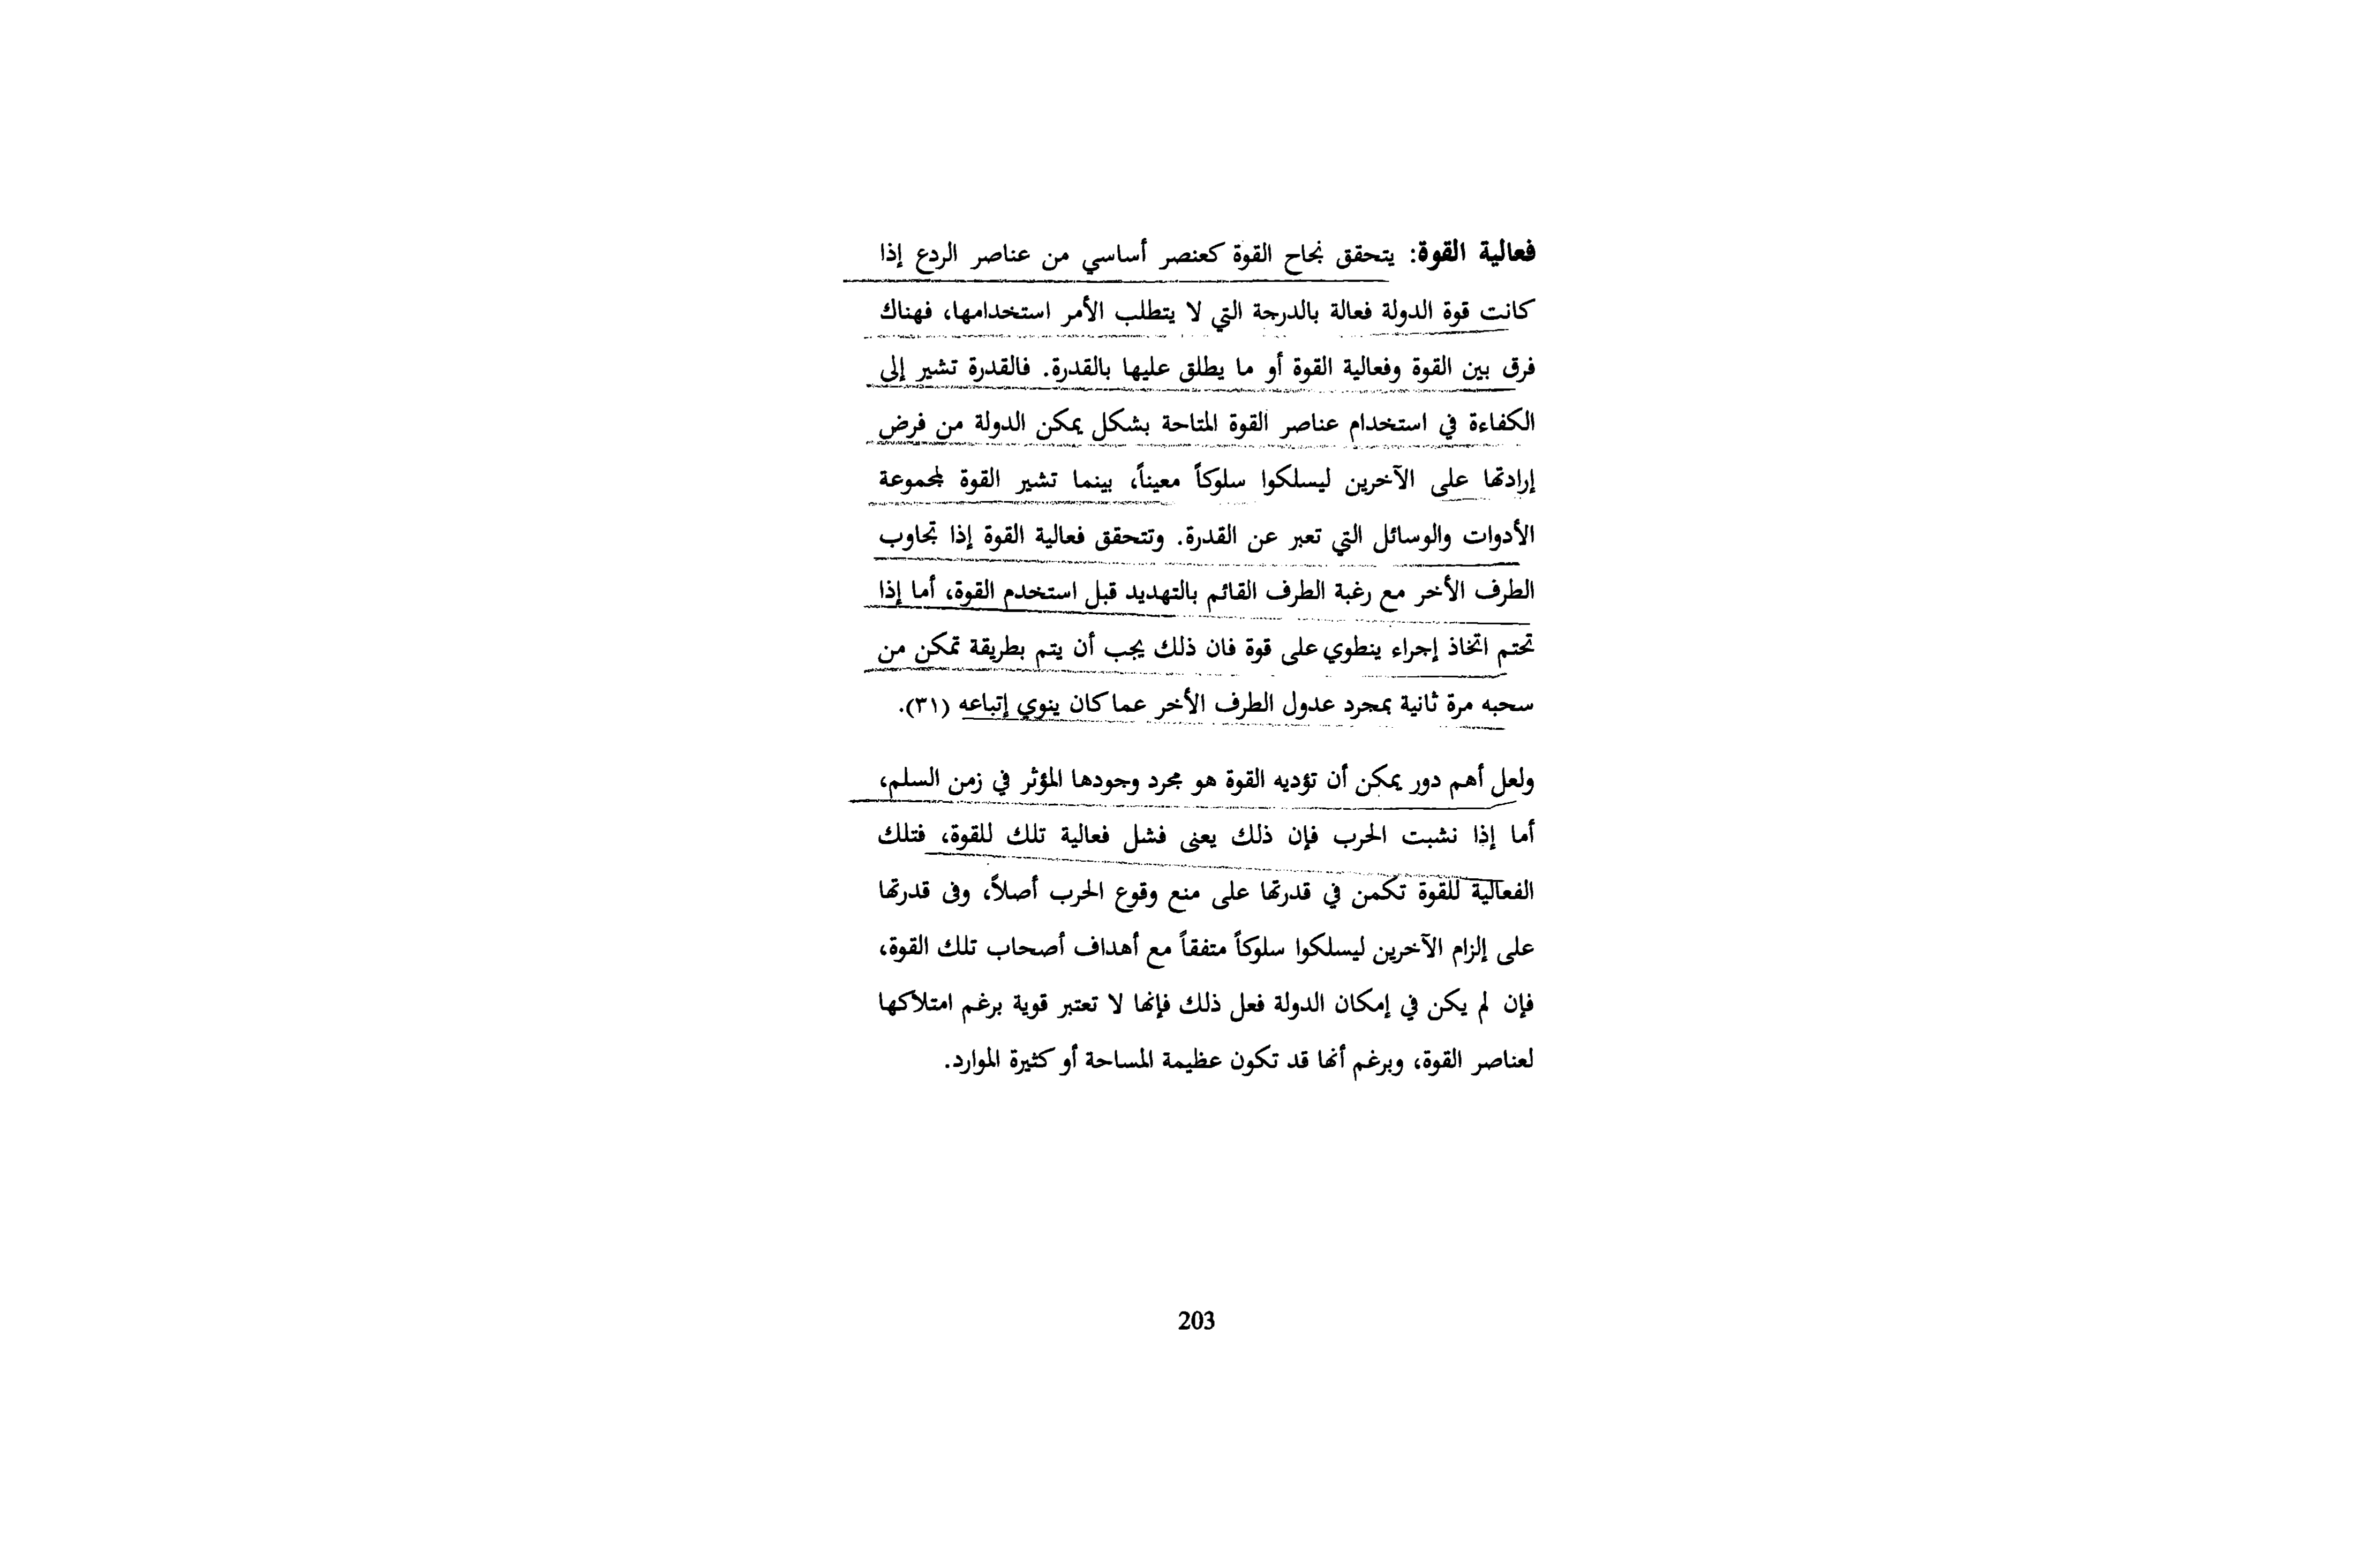 فعالية القوة: يتحقق نجاح القوة كعنصر أساسي من عناصر الردع إذا
كانت قوة الدولة فعالة بالدرجة التي لا يتطلب الأمر استخدامها، فهناك
فرق بين القوة وفعالية القوة أو ما يطلق عليها بالقدرة. فالقدرة تشير إلى
الكفاءة في استخدام عناصر القوة المتاحة بشكل يمكن الدولة من فرض
إرادتها على الآخرين ليسلكوا سلوكاً معيناً، بينما تشير القوة لمجموعة
الأدوات والوسائل التي تعبر عن القدرة. وتتحقق فعالية القوة إذا تجاوب
الطرف الأخر مع رغبة الطرف القائم بالتهديد قبل استخدم القوة، أما إذا
تحتم اتخاذ إجراء ينطوي على قوة فان ذلك يجب أن يتم بطريقة تمكن من
سحبه مرة ثانية بمجرد عدول الطرف الأخر عما كان ينوي إتباعه (٣١).
ولعل أهم دور يمكن أن تؤديه القوة هو مجرد وجودها المؤثر في زمن السلم،
أما إذا نشبت الحرب فإن ذلك يعنى فشل فعالية تلك للقوة، فتلك
الفعالية للقوة تكمن في قدرتها على منع وقوع الحرب أصلاً، وفى قدرتها
على إلزام الآخرين ليسلكوا سلوكاً متفقاً مع أهداف أصحاب تلك القوة،
فإن لم يكن في إمكان الدولة فعل ذلك فإنها لا تعتبر قوية برغم امتلاكها
لعناصر القوة، وبرغم أنها قد تكون عظيمة المساحة أو كثيرة الموارد.
203